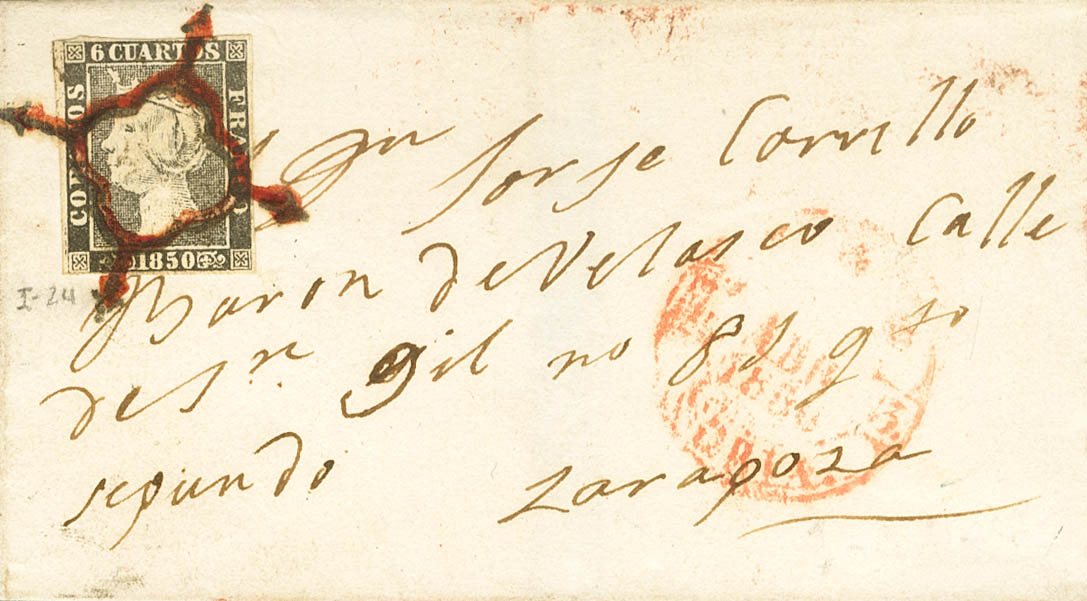 6 CUARTOS
CORREOS
FRANCO
1850
I-24
Jorse Corrillo
Baron de Velasco Calle
de Sn Gil no 81 qto
segundo Zaragoza
1850